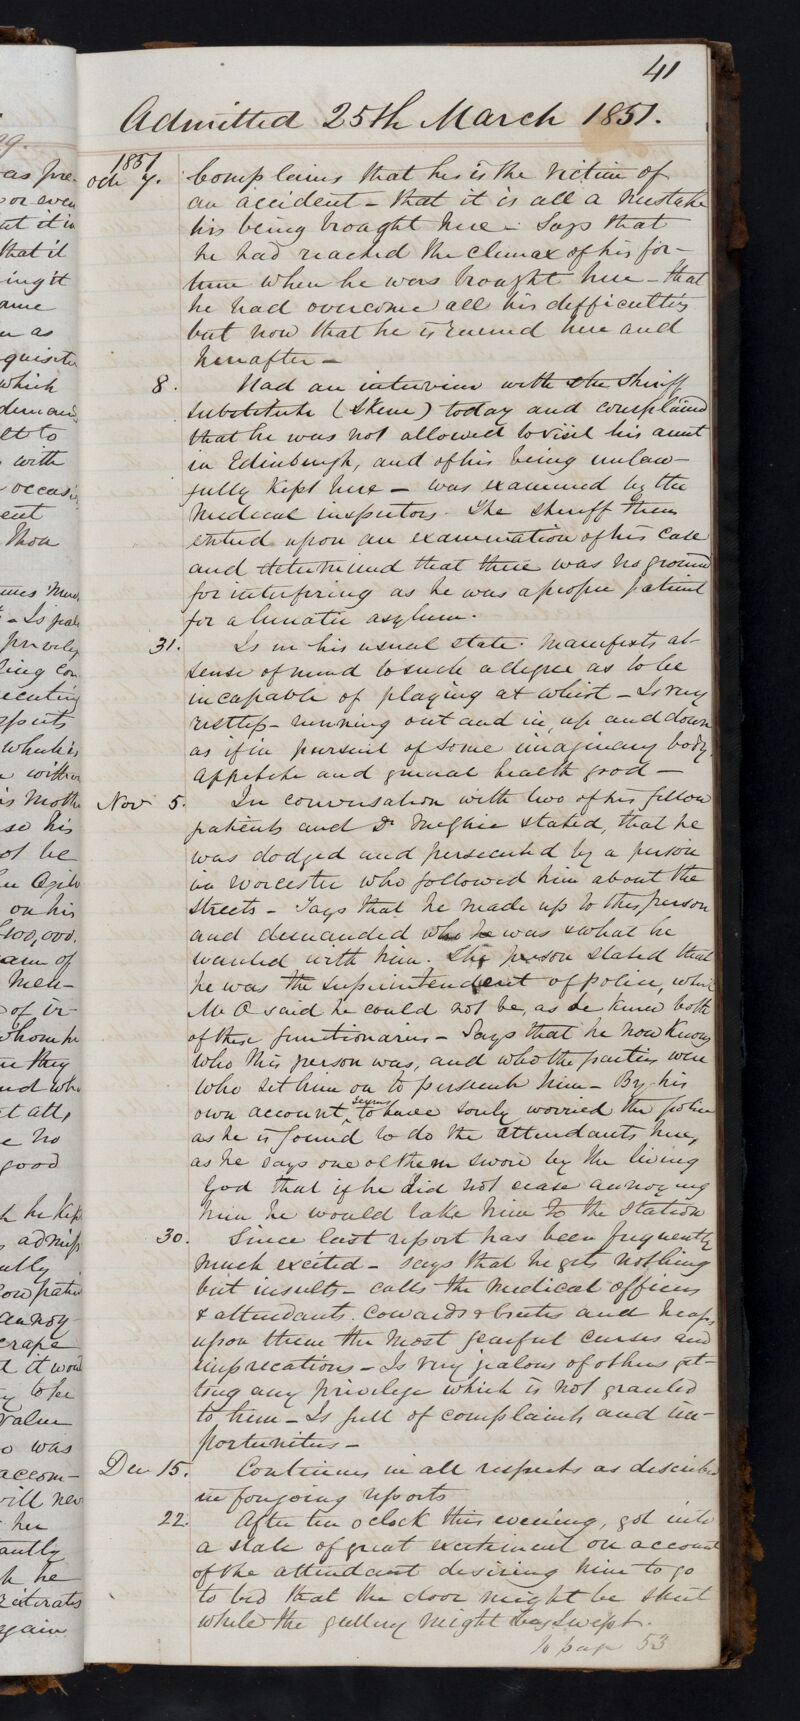 41
Admitted 25th March 1851.
1851
Oct 7. Complains that he is the victim of
an accident – that it is all a mistake
his being brought here – Says that
he had reached the climax of his for-
tune when he was brought here – that
he had overcome all his difficulties
but now that he is ruined here and
hereafter –
8. Had an interview with the Sheriff
substitute (Skene) today and complained
that he was not allowed to visit his aunt
in Edinburgh, and of his being unlaw-
fully kept here – was examined by the
Medical inspectors. The Sheriff then
entered upon an examination of his case
and determined that there was no ground
for interfering as he was a proper patient
for a lunatic asylum.
31. Is in his usual state. Manifests ab-
sence of mind to such a degree as to be
incapable of playing at whist – Is very
restless – running out and in, up and down
as if in pursuit of some imaginary body.
Appetite and general health good –
Nov 5. In conversation with two of his fellow
patients and Dr McGhie stated, that he
was dodged and persecuted by a person
in Worcester who followed him about the
streets – Says that he made up to this person
and demanded who he was & what he
wanted with him. The person stated that
he was the superintendent of police, which
Mr O said he could not be, as he knew both
of these functionaries – Says that he now knows
who this person was, and who the parties were
who set him on to persecute him – By his
own account, seems to have sorely worried the police
as he is found to do the attendants here,
as he says one of them swore by the living
God that if he did not cease annoying
him he would take him to the station
30. Since last report has been frequently
much excited – says that he gets nothing
but insults – calls the medical officers
& attendants cowards & brutes and heaps
upon them the most fearful curses and
imprecations – Is very jealous of others get-
ting any privilege which is not granted
to him – Is full of complaints and im-
portunities –
Dec 15. Continues in all respects as described
in foregoing reports
22. After ten oclock this evening, got into
a state of great excitement on account
of the attendant desiring him to go
to bed that the door might be shut
while the gallery might be swept.
to page 53